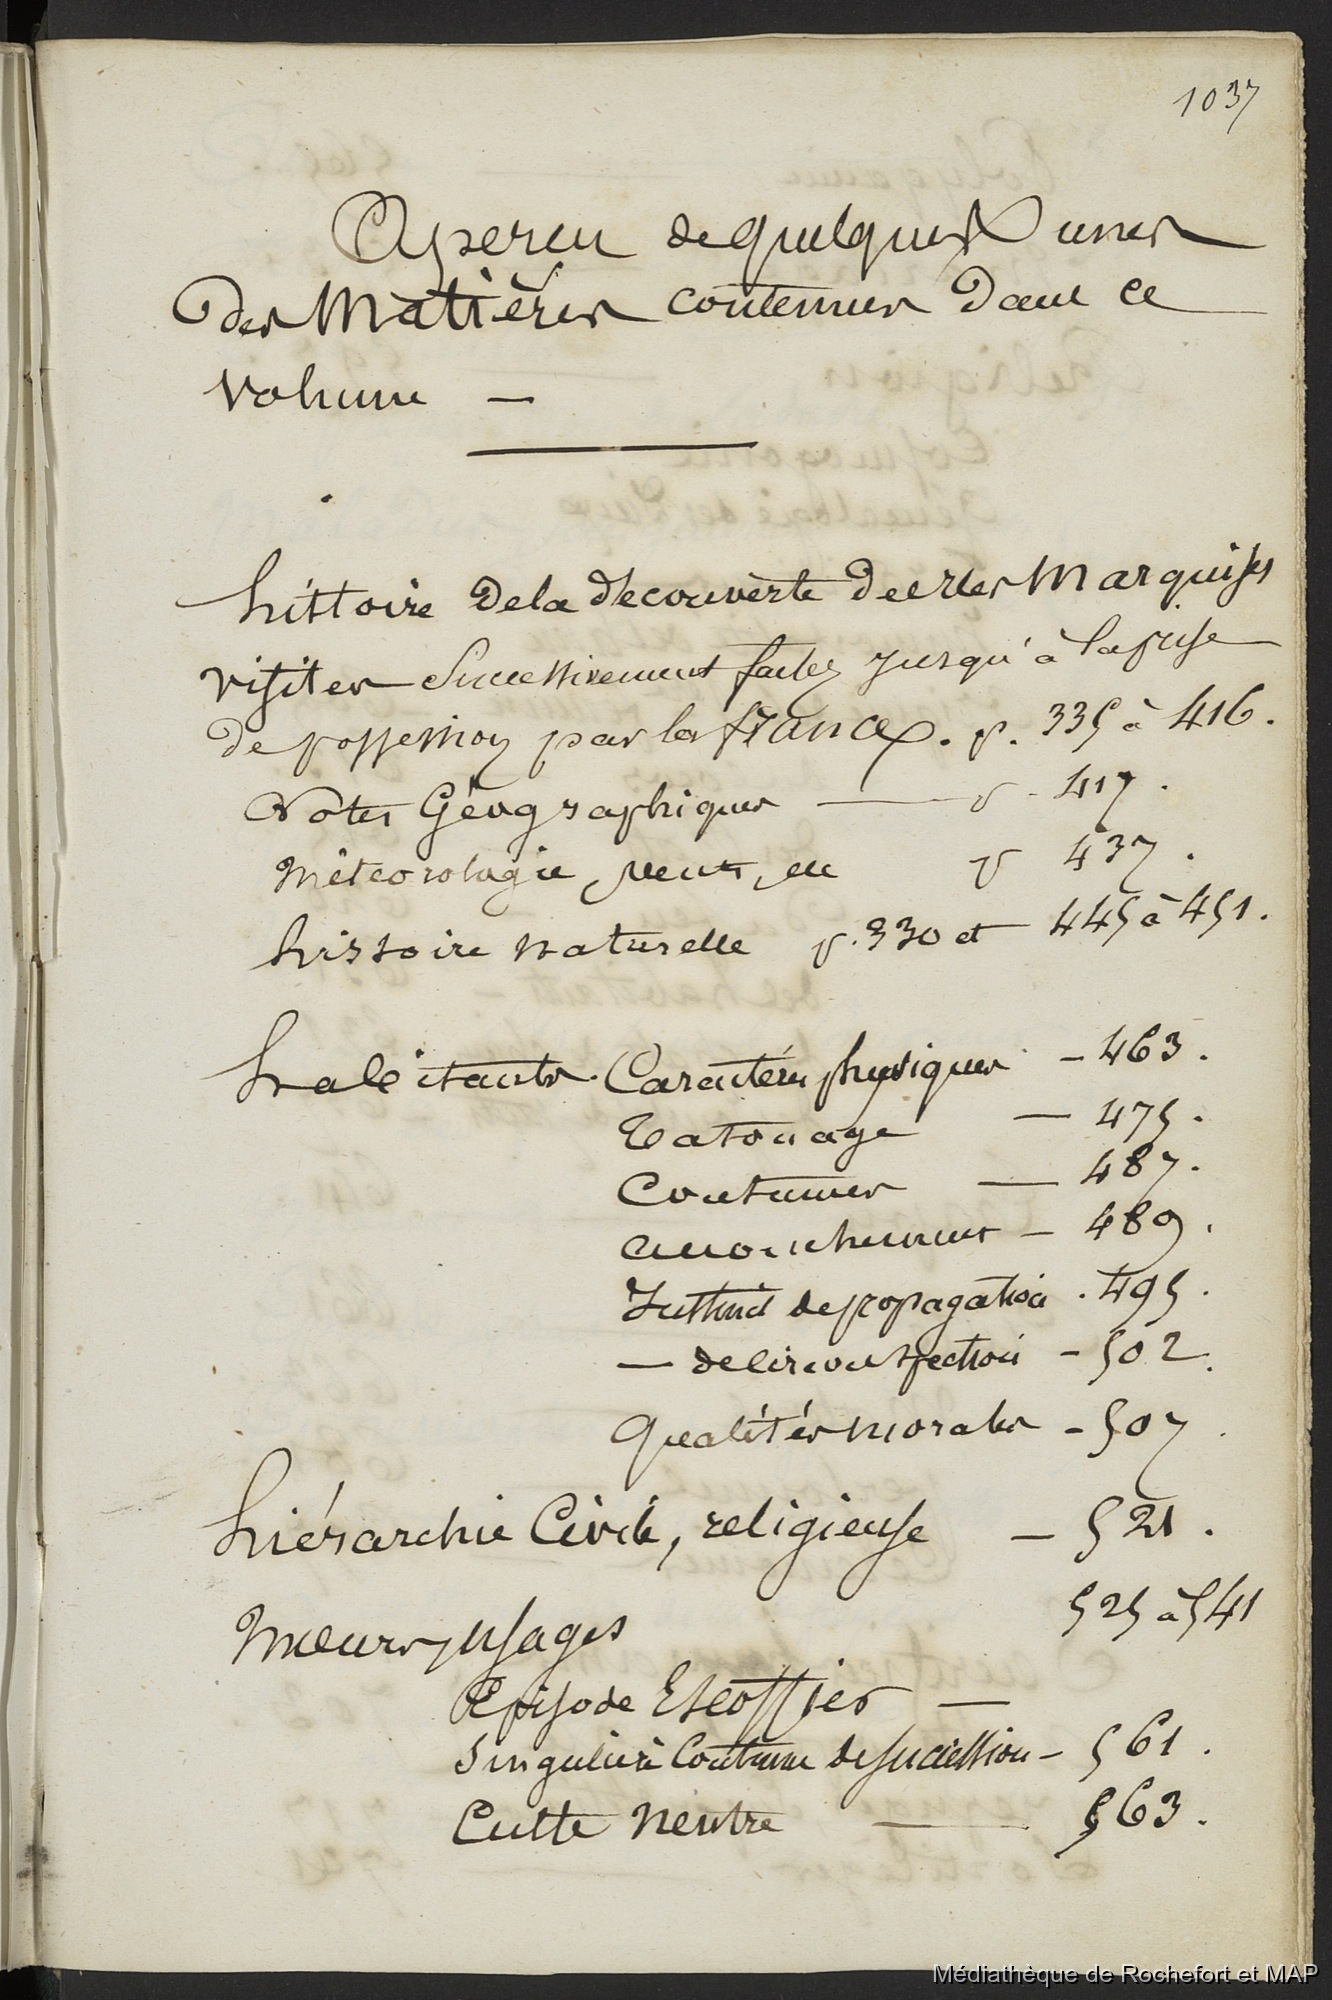 1037
Aperçu de quelques unes
des Matières contenues dans ce
volume —
histoire de la découverte des iles Marquises
visites successivement faites jusqu'à la prise
de possession par la france. p. 335 à 416.
Notes Géographiques — p. 417.
Météorologie, vents, etc p 437.
histoire naturelle p. 330 et 445 à 451.
habitants. Caractères physiques — 463.
Tatouage — 475.
Coutumes — 487.
accouchement — 489.
Instinct de propagation . 495.
— de circonspection — 502.
Qualités morales — 507.
hiérarchie Civile, religieuse — 521.
Mœurs, usages 525 à 541
Episode Escoffier —
Singulière Coutume de succession — 561.
Culte Neutre — 563.
Médiathèque de Rochefort et MAP